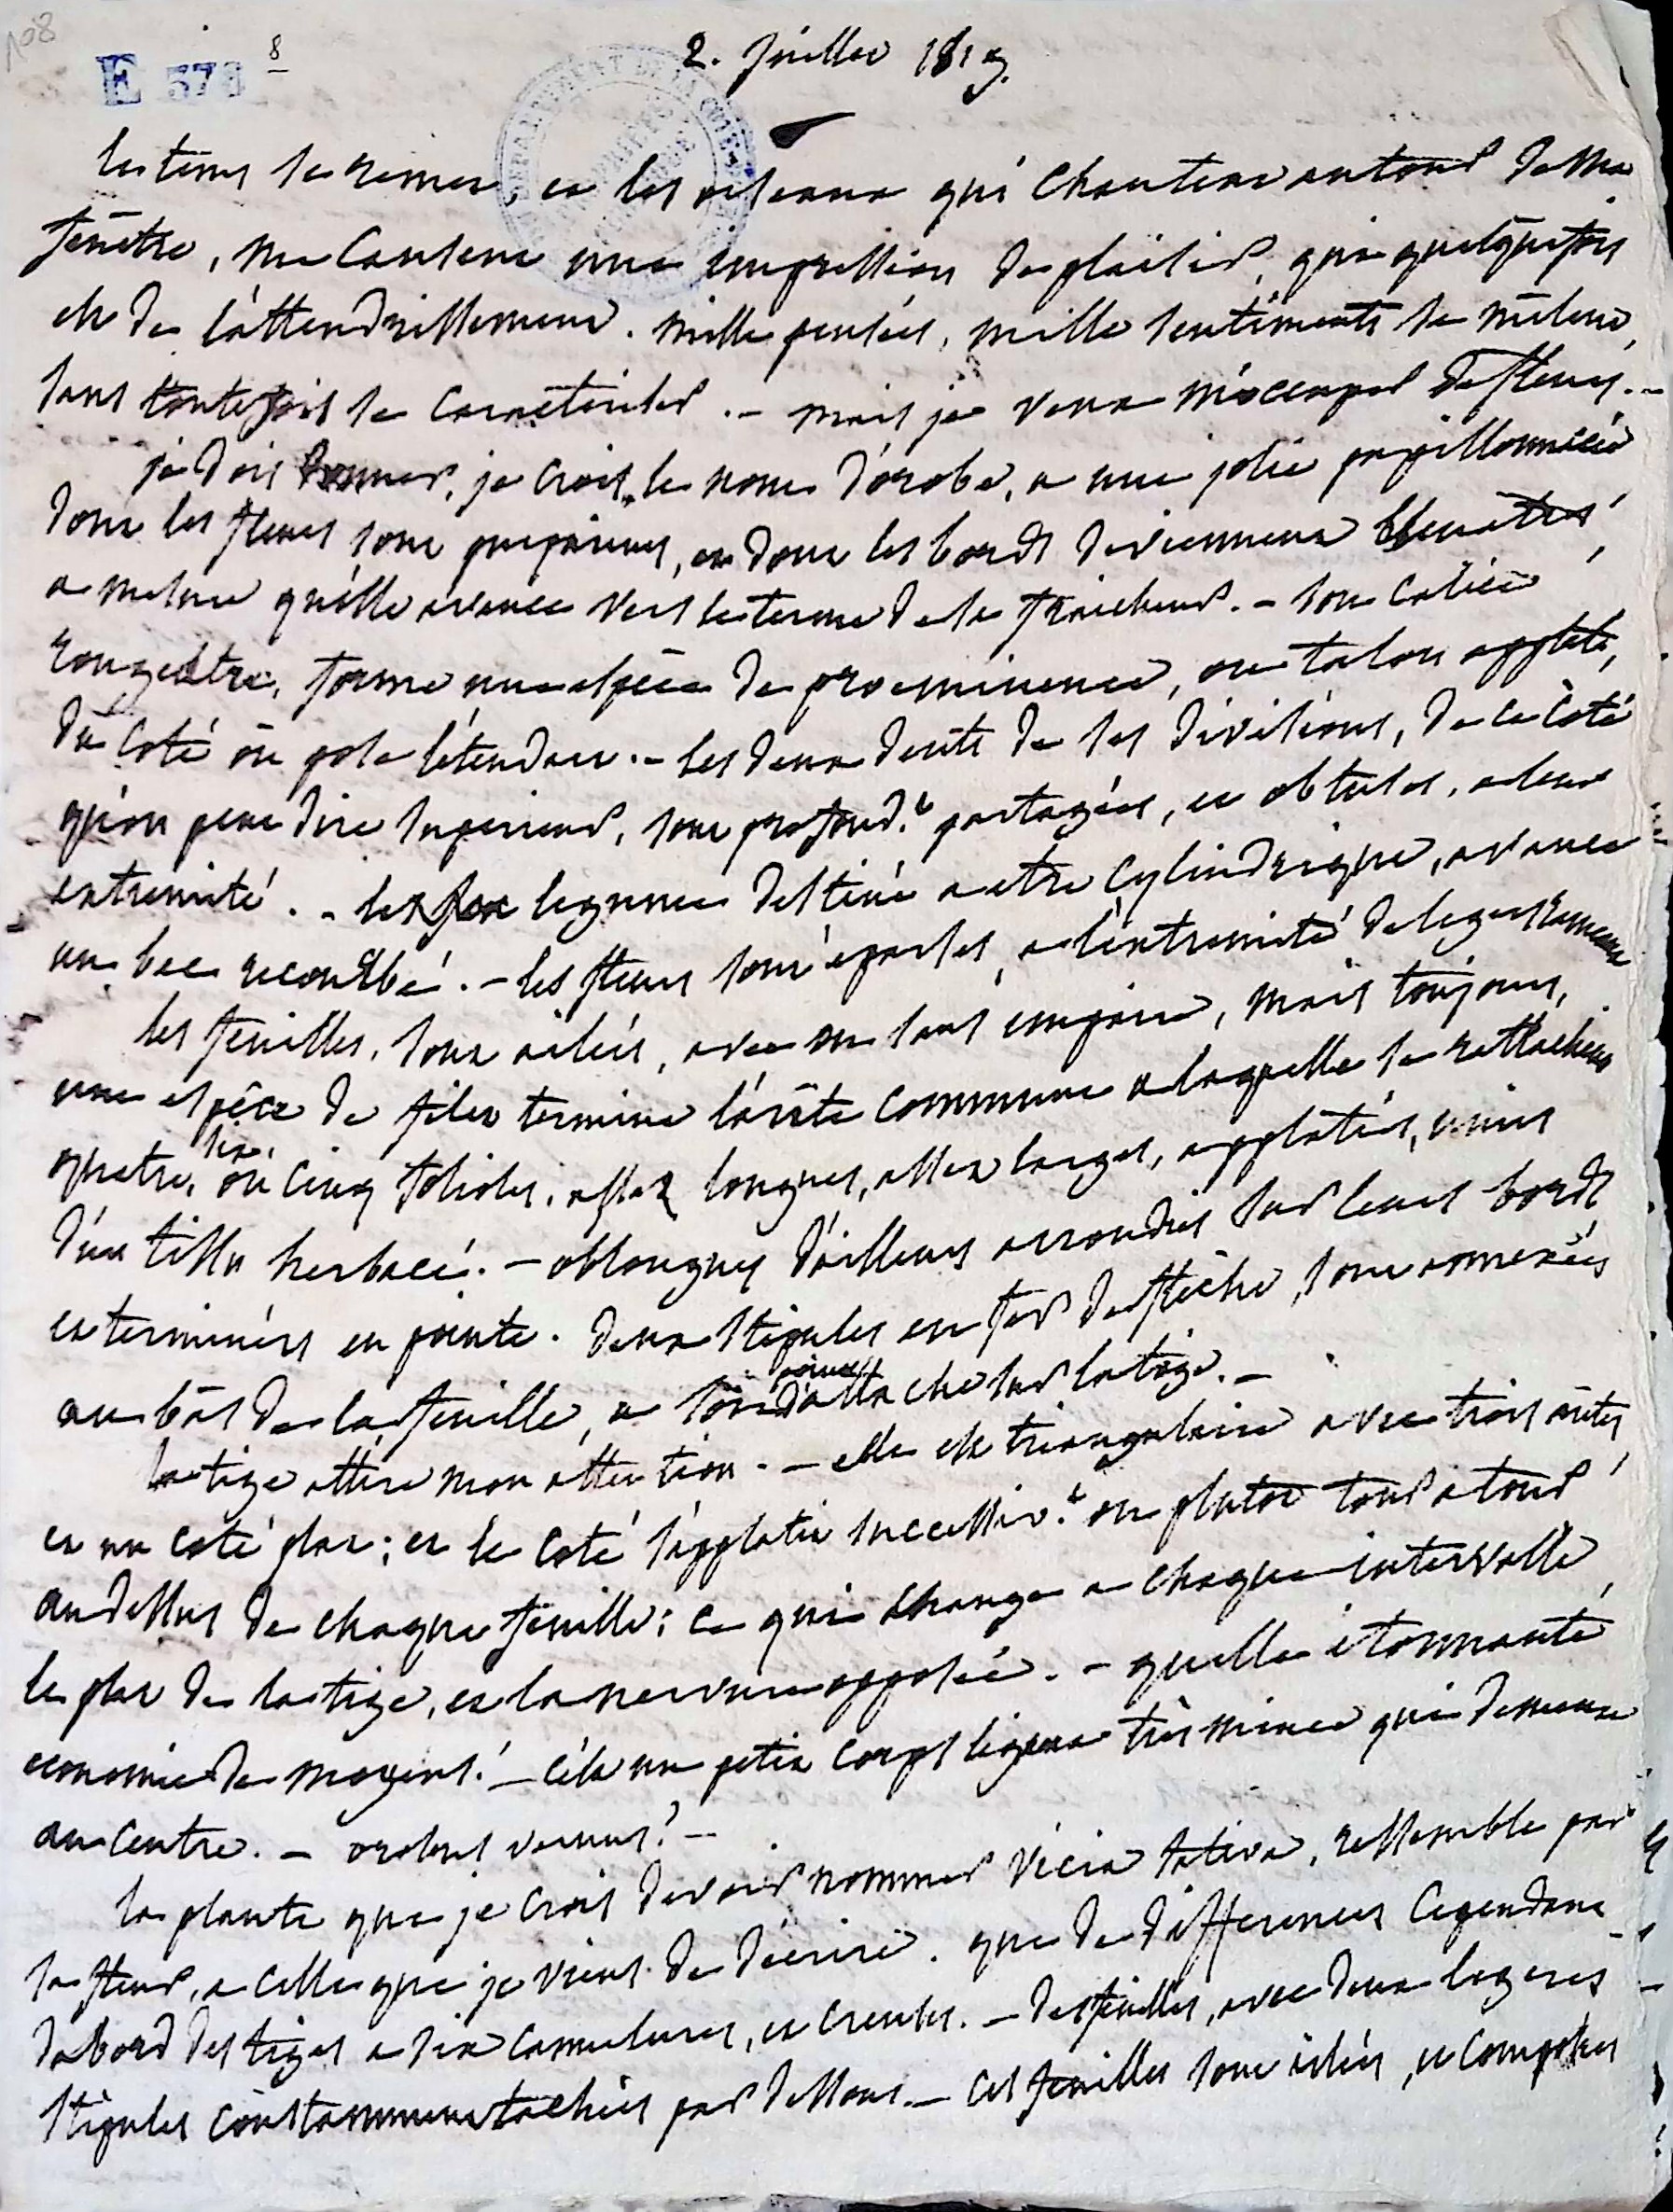 108
E 576 8
2. juillet 1819.
le tems se remet, et les oiseaux qui chantent autour de ma
fenêtre, me causent une impression de plaisir, qui quelquefois
est de l'attendrissement. mille pensées, mille sentiments se mêlent,
sans toutefois se caractériser. – mais je veux m'occuper de fleurs. –
je dois donner, je crois, le nom d'orobe, a une jolie papillonnacée
dont les fleurs sont purpurines, et dont les bords deviennent bleuatres
a mesure qu'elle avance vers le terme de sa fraicheur. – son calice
rougeatre, forme une espèce de proeminence, ou talon applati,
du coté où pose l'étendart. – les deux dents de ses divisions, de ce coté
qu'on peut dire superieur, sont profond.t partagées, et obtuses, a leur
extremité. – le legume destiné a etre cylindrique, avance
un bec recourbé. – les fleurs sont eparses, a l'extremité de legers rameaux
les feuilles, sont ailées, avec ou sans impaire, mais toujours,
une espèce de filet termine l'arête commune a laquelle se rattachent
quatre, six, ou cinq folioles, assez longues, assez larges, applaties, unies
d'un tissu herbacé. – oblongues d'ailleurs arrondies sur leurs bords
et terminées en pointe. deux stipules en fer de flèche, sont amenées
au bas de la feuille, a son point d'attache sur la tige. –
la tige attire mon attention. – elle est triangulaire avec trois arêtes,
et un coté plat; et le coté s'applatit successiv.t ou plutot tour a tour
au dessus de chaque feuille; ce qui change a chaque intervalle,
le plat de la tige, et la nervure opposée. – quelle étonnante
economie de moyens! – c'est un petit corps ligneux très mince qui demeure
au centre. – orobus vernus? –
la plante que je crois devoir nommer vicia sativa, ressemble par
sa fleur, a celle que je viens de décrire. que de differences cependant
d'abord des tiges a six cannelures, et creuses. – des feuilles, avec deux legeres
stipules constamment tachées par dessous. – ces feuilles sont ailées, et composées